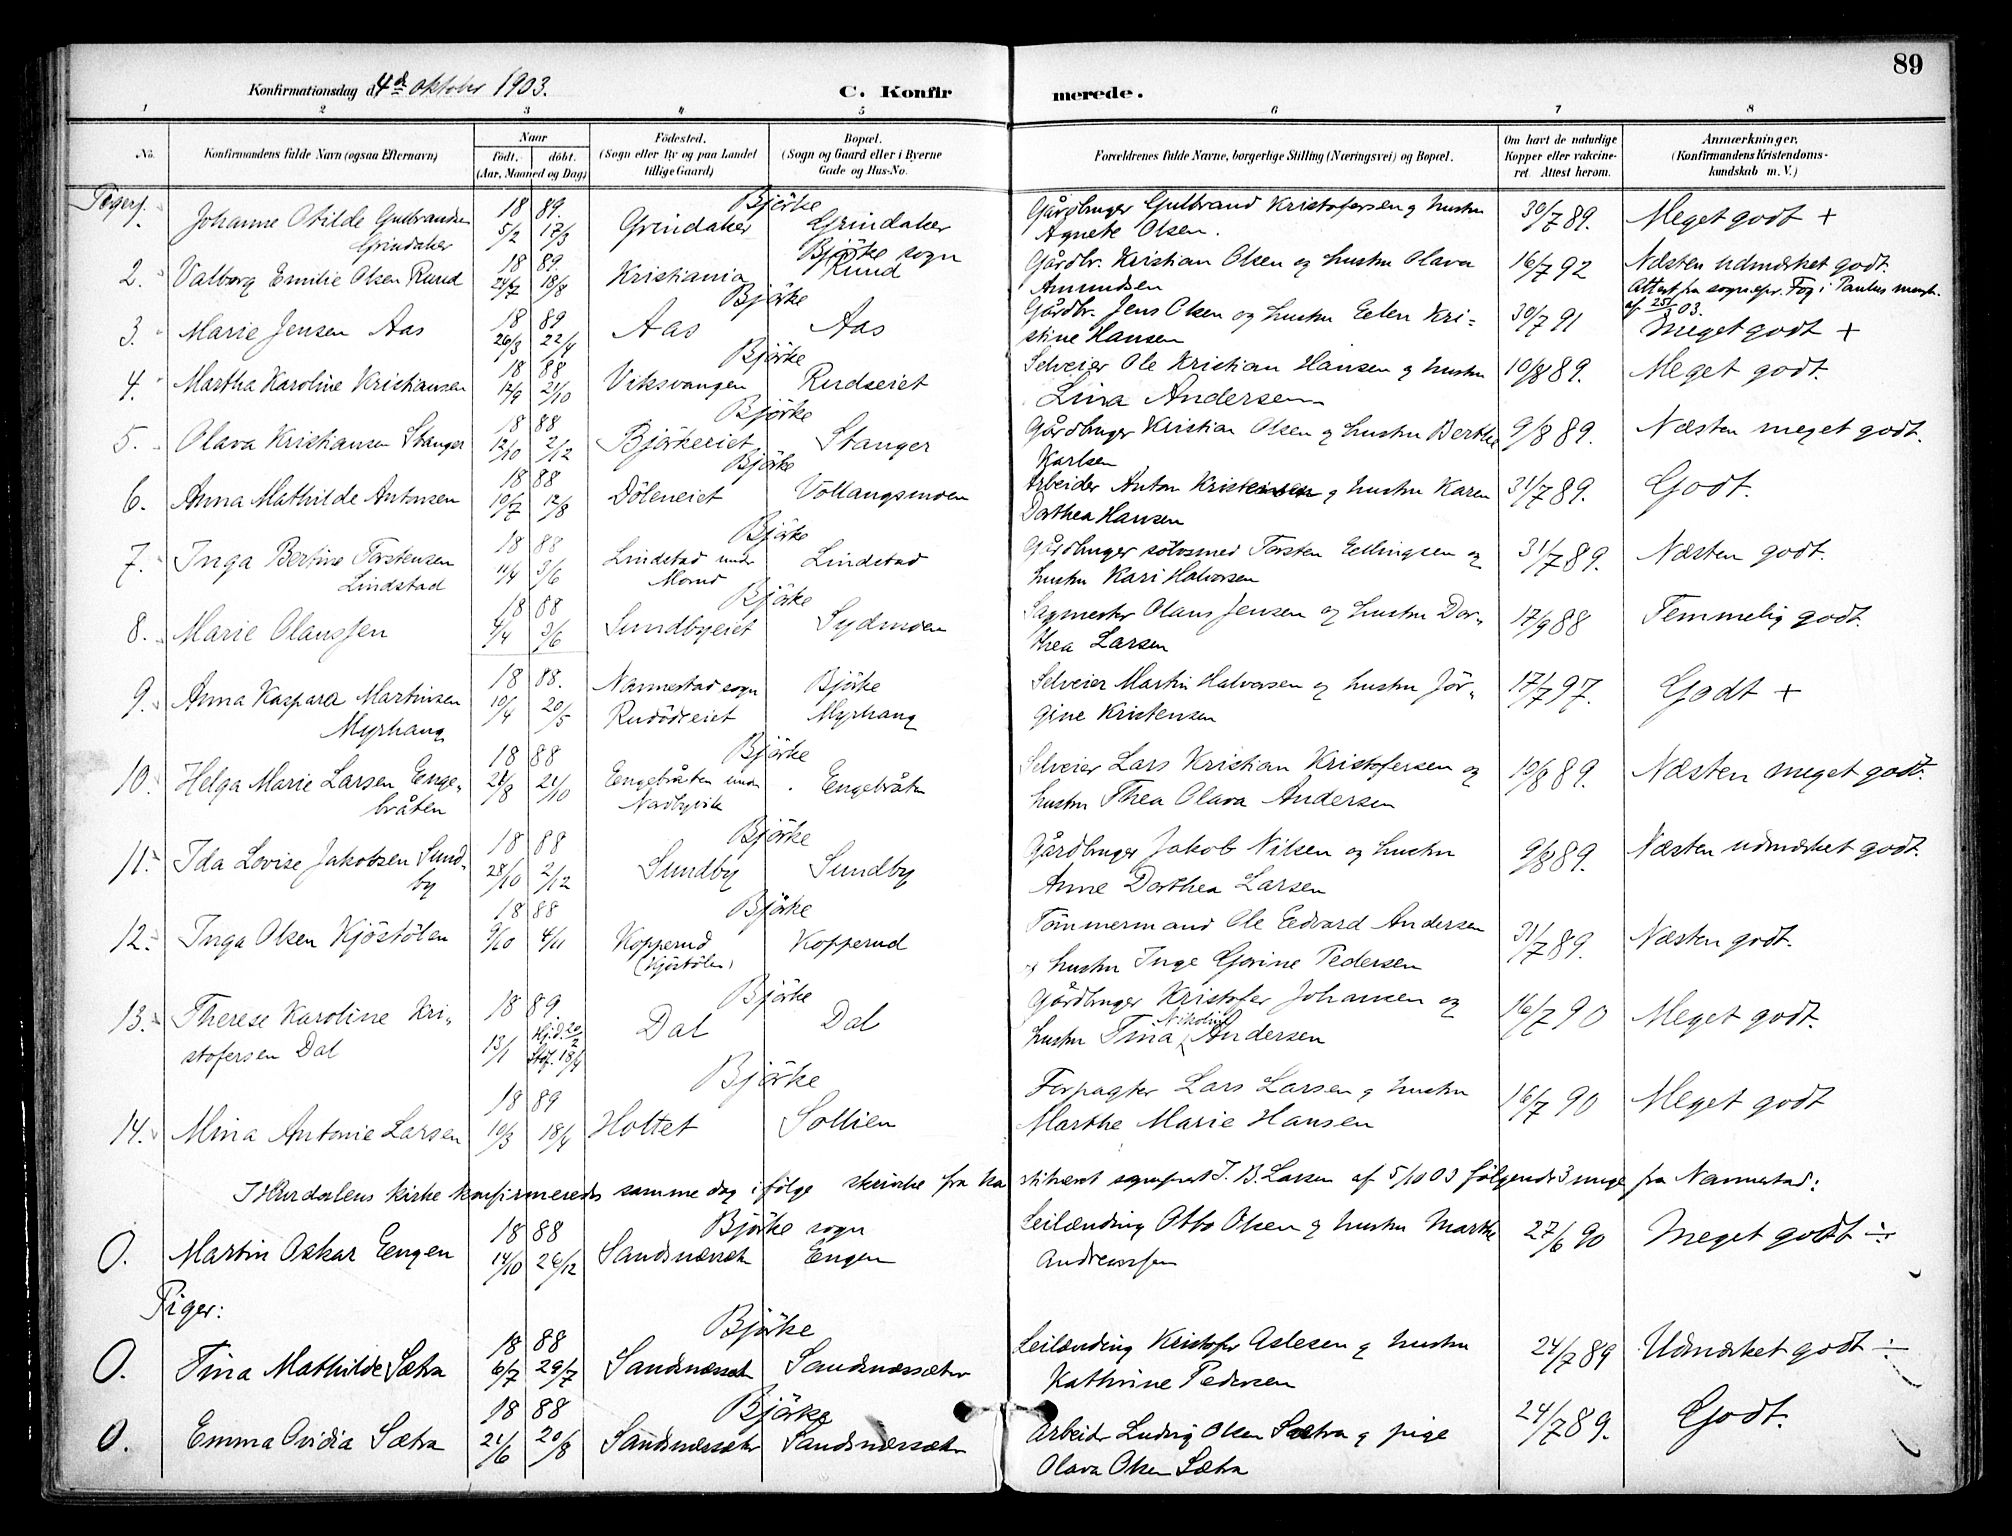 89
Konfirmationsdag d. 4de oktober 1903.
C. Konfirmerede.
1 2 3 4 5 6 7 8
No.
Konfirmandens fulde Navn (ogsaa Efternavn)
Naar
födt. döbt.
(Aar, Maaned og Dag)
Födested.
(Sogn eller By og paa Landet
tillige Gaard)
Bopæl.
(Sogn og Gaard eller i Byerne
Gade og Hus-No.
Forældrenes fulde Navne, borgerlige Stilling (Næringsvei) og Bopæl.
Om havt de naturlige
Kopper eller vakcine-
ret. Attest herom.
Anmærkninger,
(Konfirmandens Kristendoms-
kundskab m. V.)
Piger
1. Johanne Otilde Gulbrandsen 18 89. Björke Gårdbruger Gulbrand Kristofersen og hustru 30/7 89. Meget godt +
Grindaker 5/2 17/3 Grindaker Grindaker Agnete Olsen.
2. Valborg Emilie Olsen Rud 18 89. Kristiania Björke sogn Rud Gårdbr. Kristian Olsen og hustru Olava 16/7 92 Næsten udmærket godt.
18/8 Amundsen Attest fra sognepr. i Paulus
af 25/ 03.
3. Marie Jensen Aas 18 89 26/3 22/4 Björke Aas Aas Gårdbr. Jens Olsen og hustru Eelen Kri- 30/7 91 Meget godt +
stine Hansen
4. Martha Karoline Kristiansen 18 88 12/9 21/10 Björke Viksvangen Rudseiet Selveier Ole Kristian Hansen og hustru 10/8 89. Meget godt.
Lina Andersen
5. Olava Kristiansen Stanger 18 88 12/10 2/12 Björke Björkeeiet Stanger Gårdbruger Kristian Olsen og hustru Berthe 9/8 89. Næsten meget godt.
Karlsen
6. Anna Mathilde Antonsen 18 88 10/7 12/8 Björke Döleneiet Vollaugsmoen Arbeider Anton Kristensen og hustru Karen 31/7 89. Godt.
Dorthea Hansen
7. Inga Bertine Torstensen 18 88 Björke Lindstad under Lindstad Gårdbruger sölvsmed Torsten Eellingsen og 31/7 89. Næsten godt.
Lindstad 11/4 3/6 Morud hustru Kari Halvorsen
8. Marie Olaussen 18 88 4/4 3/6 Björke Sundbyeiet Sydmoen Sagmester Olaus Jensen og hustru Dor- 17/9 88 Temmelig godt.
thea Larsen
9. Anna Kaspara Martinsen 18 88. Nannestad sogn Björke Selveier Martin Halvorsen og hustru Jör- 17/7 97. Godt +
Myrhaug 10/4 20/5 Rudödseiet Myrhaug gine Kristensen
10. Helga Marie Larsen Enge- 18 88 Björke Eengebråten under Eengebråten Selveier Lars Kristian Kristofersen og 10/8 89. Næsten meget godt.
bråten 21/8 21/10 Nadbyvik hustru Thea Olava Andersen
11. Ida Lovise Jakobsen Sund- 18 88 Björke Gårdbruger Jakob Nilsen og hustru 9/8 89. Næsten udmærket godt.
by 28/10 2/12 Sundby Sundby Anne Dorthea Larsen
12. Inga Olsen Kjöstölen 18 88 9/10 4/11 Björke Kopperud Kopperud Tömmermand Ole Eedvard Andersen 31/7 89. Næsten godt.
(Kjöstölen) og hustru Inge Gorine Pedersen
13. Therese Karoline Kri- 18 89. Björke Dal Dal Gårdbruger Kristofer Johansen og 16/7 90 Meget godt.
stofersen Dal 13/1 Hj.d. 20/2 Stf. 18/4 hustru Tina Nikoline Andersen
14. Mina Antonie Larsen 18 89 10/3 18/4 Björke Holtet Sollien Forpagter Lars Larsen og hustru 16/7 90 Meget godt
Marthe Marie Hansen
I Hurdalens kirke konfirmeredes samme dag ifölge skrivelse fra konstitueret sognepræst J. B. Larsen af 5/10 03 fölgende 3 unge fra Nannestad:
O. Martin Oskar Eengen 18 88 14/10 26/12 Björke sogn Sandsnæssæter Engen Leilænding Otto Olsen og hustru Marthe 27/6 90 Meget godt ÷
Andreassen
Piger:
O. Tina Mathilde Sætra 18 88 6/7 29/7 Björke Sandsnæssæter Sandsnæssæter Leilænding Kristofer Aslesen og hustru 24/7 89 Udmærket godt ÷
Kathrine Pedersen
O. Emma Ovidia Sætra 18 88 21/6 20/8 Björke Sandsnæssæter Sandsnæssæter Arbeider Ludvig Olsen Sætra og pige 24/7 89. Godt.
Olava Olsen Sætra